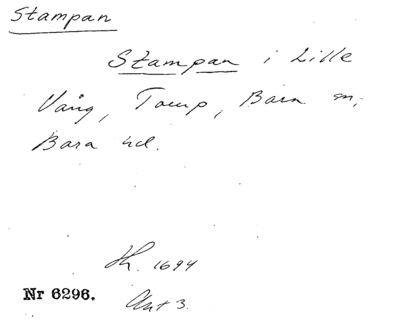 Stampan
Stampan i Lille
Vång, Tomp, Bara m,
Bara hd.
Lh. 1694
Nr 6296.
Akt 3.